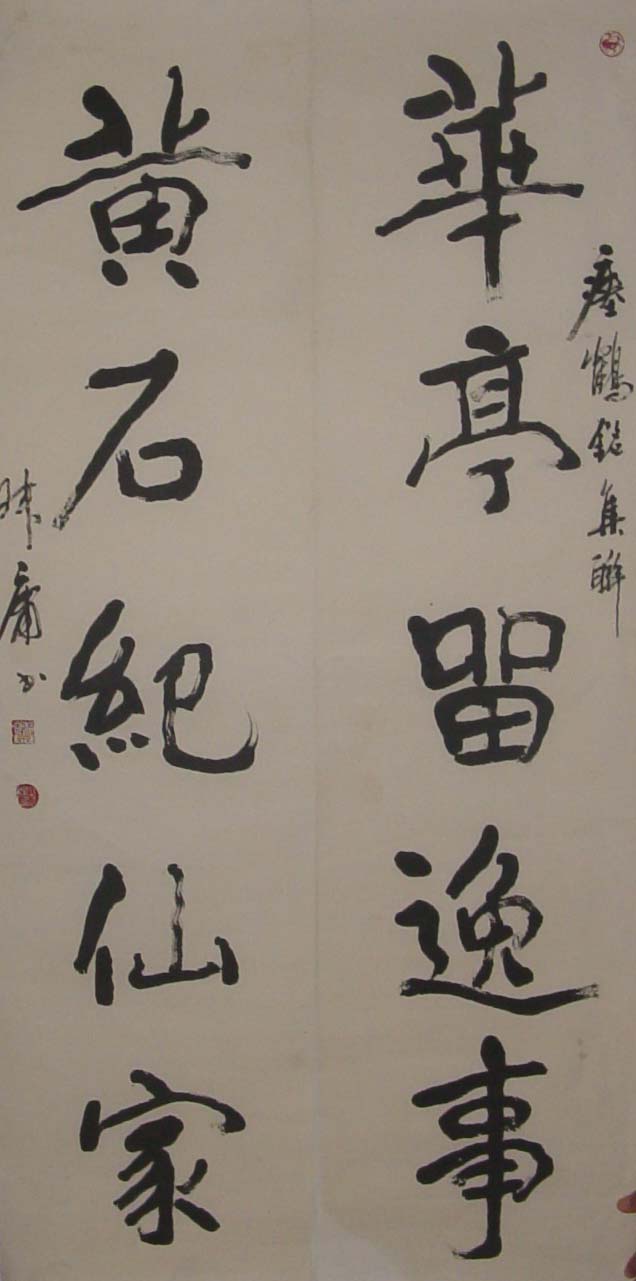 瘞鶴銘集聯
華亭留逸事
黄石紀仙家
庸书